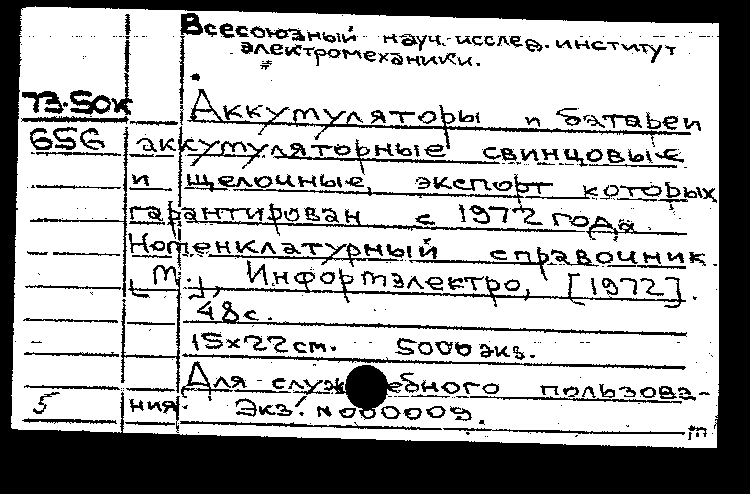 Всесоюзный науч.-исслед. институт
электромеханики.
73-50к
Аккумуляторы и батареи
656 аккумуляторные свинцовые
и щелочные, экспорт которых
гарантирован с 1972 года.
Номенклатурный справочник.
[М.], Информэлектро, [1972].
48с.
15x22см. 5000 экз.
Для служебного пользова-
5 ния. Экз. N000009.